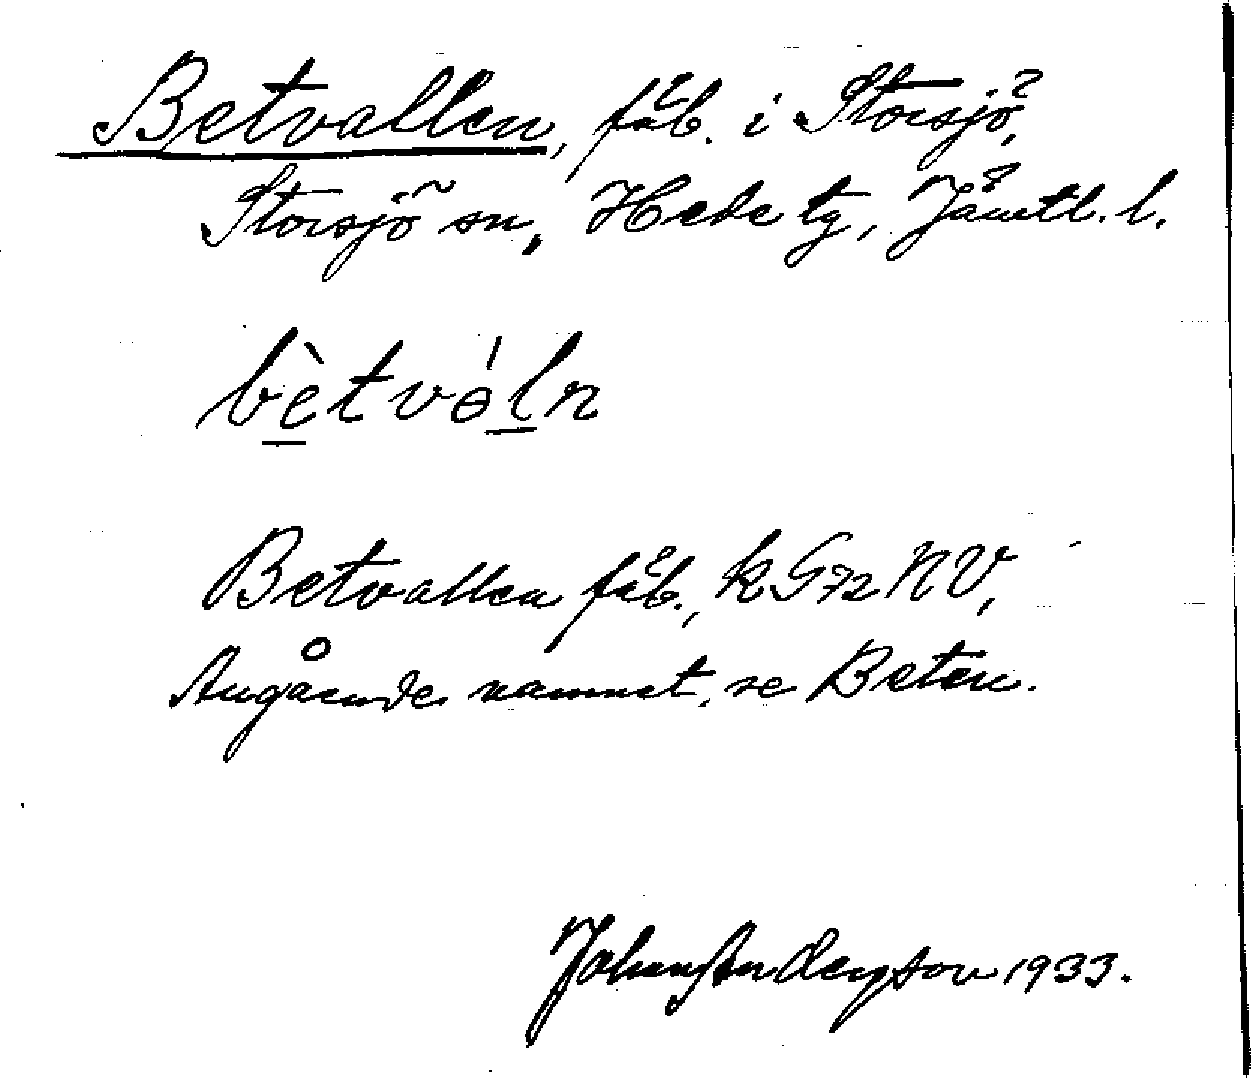 Betvallen, fäb. i Storsjö,
Storsjö sn, Hede tg, Jämtl. l.
bètvɵ́ln
Betvallen fäb., k G72 NV,
Angående namnet, se Beten.
Johan Anderson 1933.